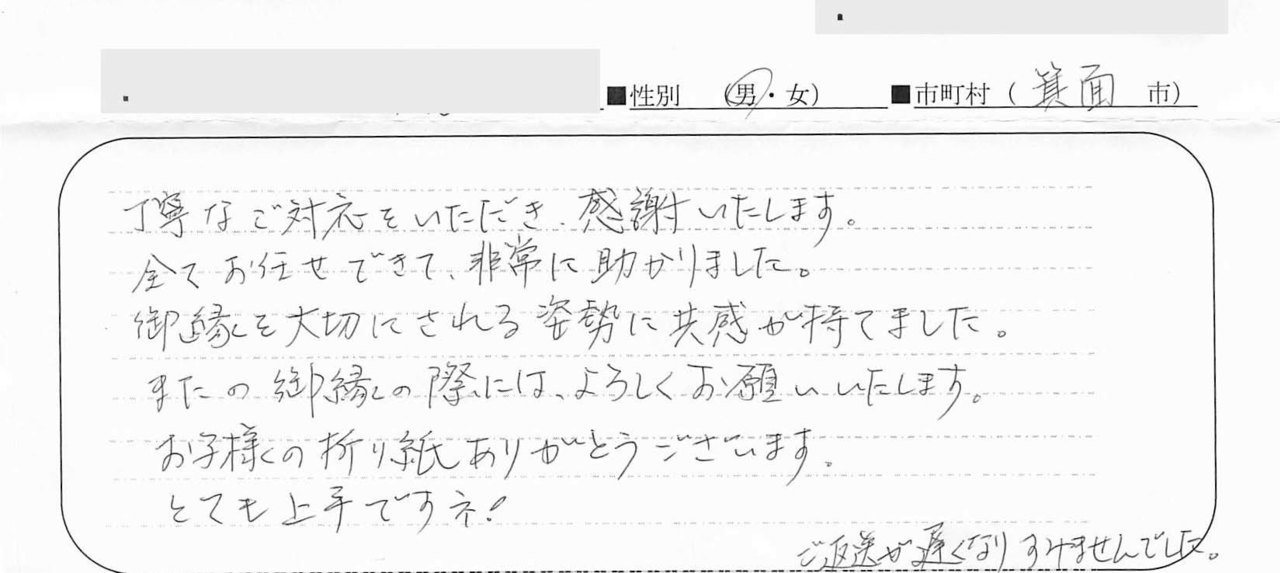 ■性別 （男・女） ■市町村（ 箕面 市）
丁寧なご対応をいただき、感謝いたします。
全てお任せできて、非常に助かりました。
御縁を大切にされる姿勢に共感が持てました。
またの御縁の際には、よろしくお願いいたします。
お子様の折り紙ありがとうございます。
とても上手ですネ！
ご返送が遅くなりすみませんでした。